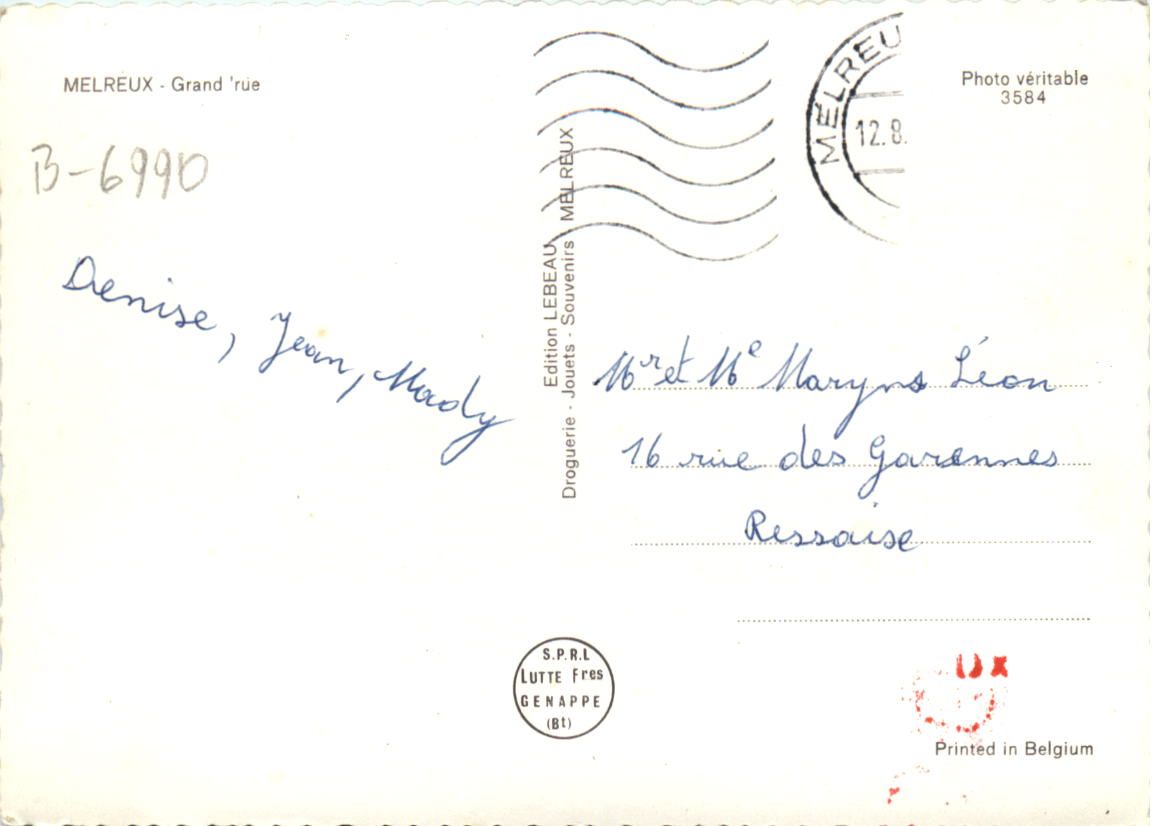 MELREUX - Grand 'rue
Photo véritable
3584
MELREU
12.8.
B-6990
Edition LEBEAU
Droguerie - Jouets - Souvenirs MELREUX
Denise, Jean, Mady
Mr et Me Maryns Léon
16 rue des Garennes
Ressaise
S.P.R.L
LUTTE Fres
GENAPPE
(Bt)
UX
Printed in Belgium